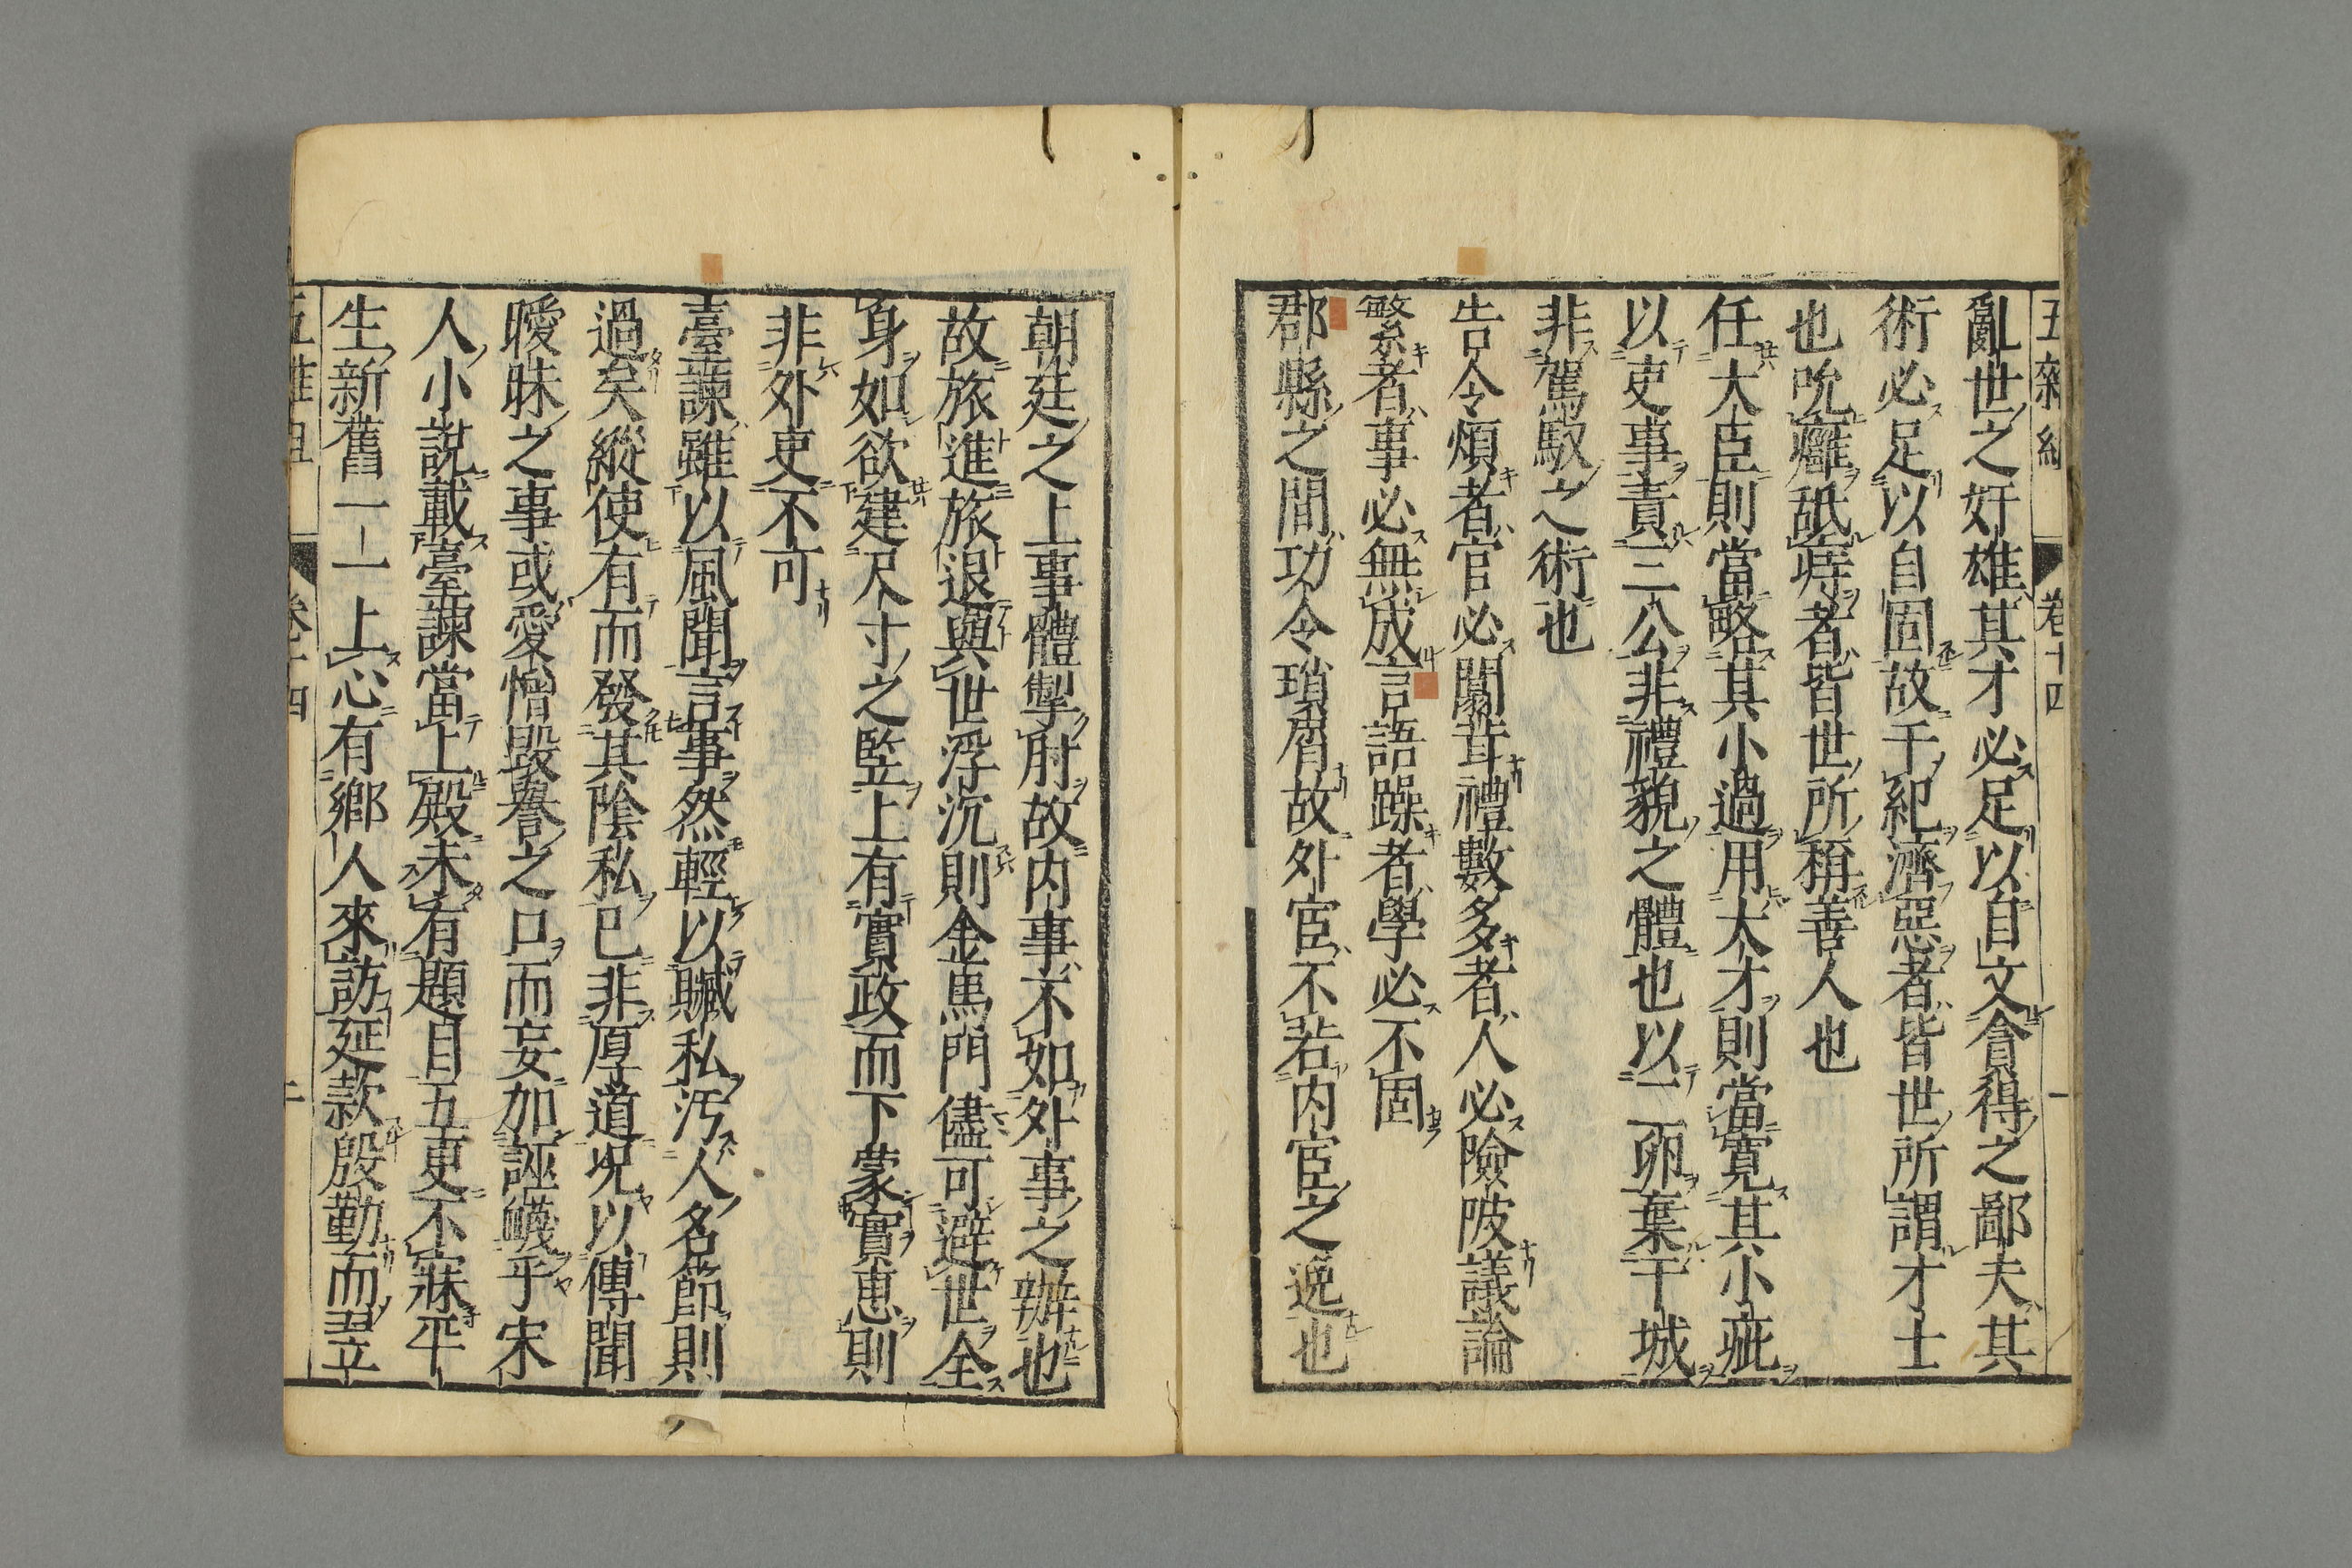 五雜組 卷十四 一
亂世之奸雄其才必足以自文貪得之鄙夫其
術必足以自固故干紀濟惡者皆世所謂才士
也吮癰舐痔者皆世所稱善人也
任大臣則當略其小過用大才則當寬其小疵
以吏事責三公非禮貌之體也以一二卵棄干城
非駕馭之術也
告令煩者官必闒茸禮數多者人必險陂議論
繁者事必無成言語躁者學必不固
郡縣之間功令瑣屑故外宦不若內宦之逸也
朝廷之上事體掣肘故內事不如外事之辦也
故旅進旅退與世浮沉則金馬門儘可避世全
身如欲建尺寸之監上有實政而下蒙實惠則
非外吏不可
臺諫雖以風聞言事然輕以贓私汚人名節則
過矣縱使有而發其陰私已非厚道況以傳聞
曖昧之事或愛憎毀譽之口而妄加誣衊乎宋
人小說載臺諫當上殿未有題目五更不寐平
生新舊一一上心有鄉人來訪延款殷勤而翌
五雜組 卷十四